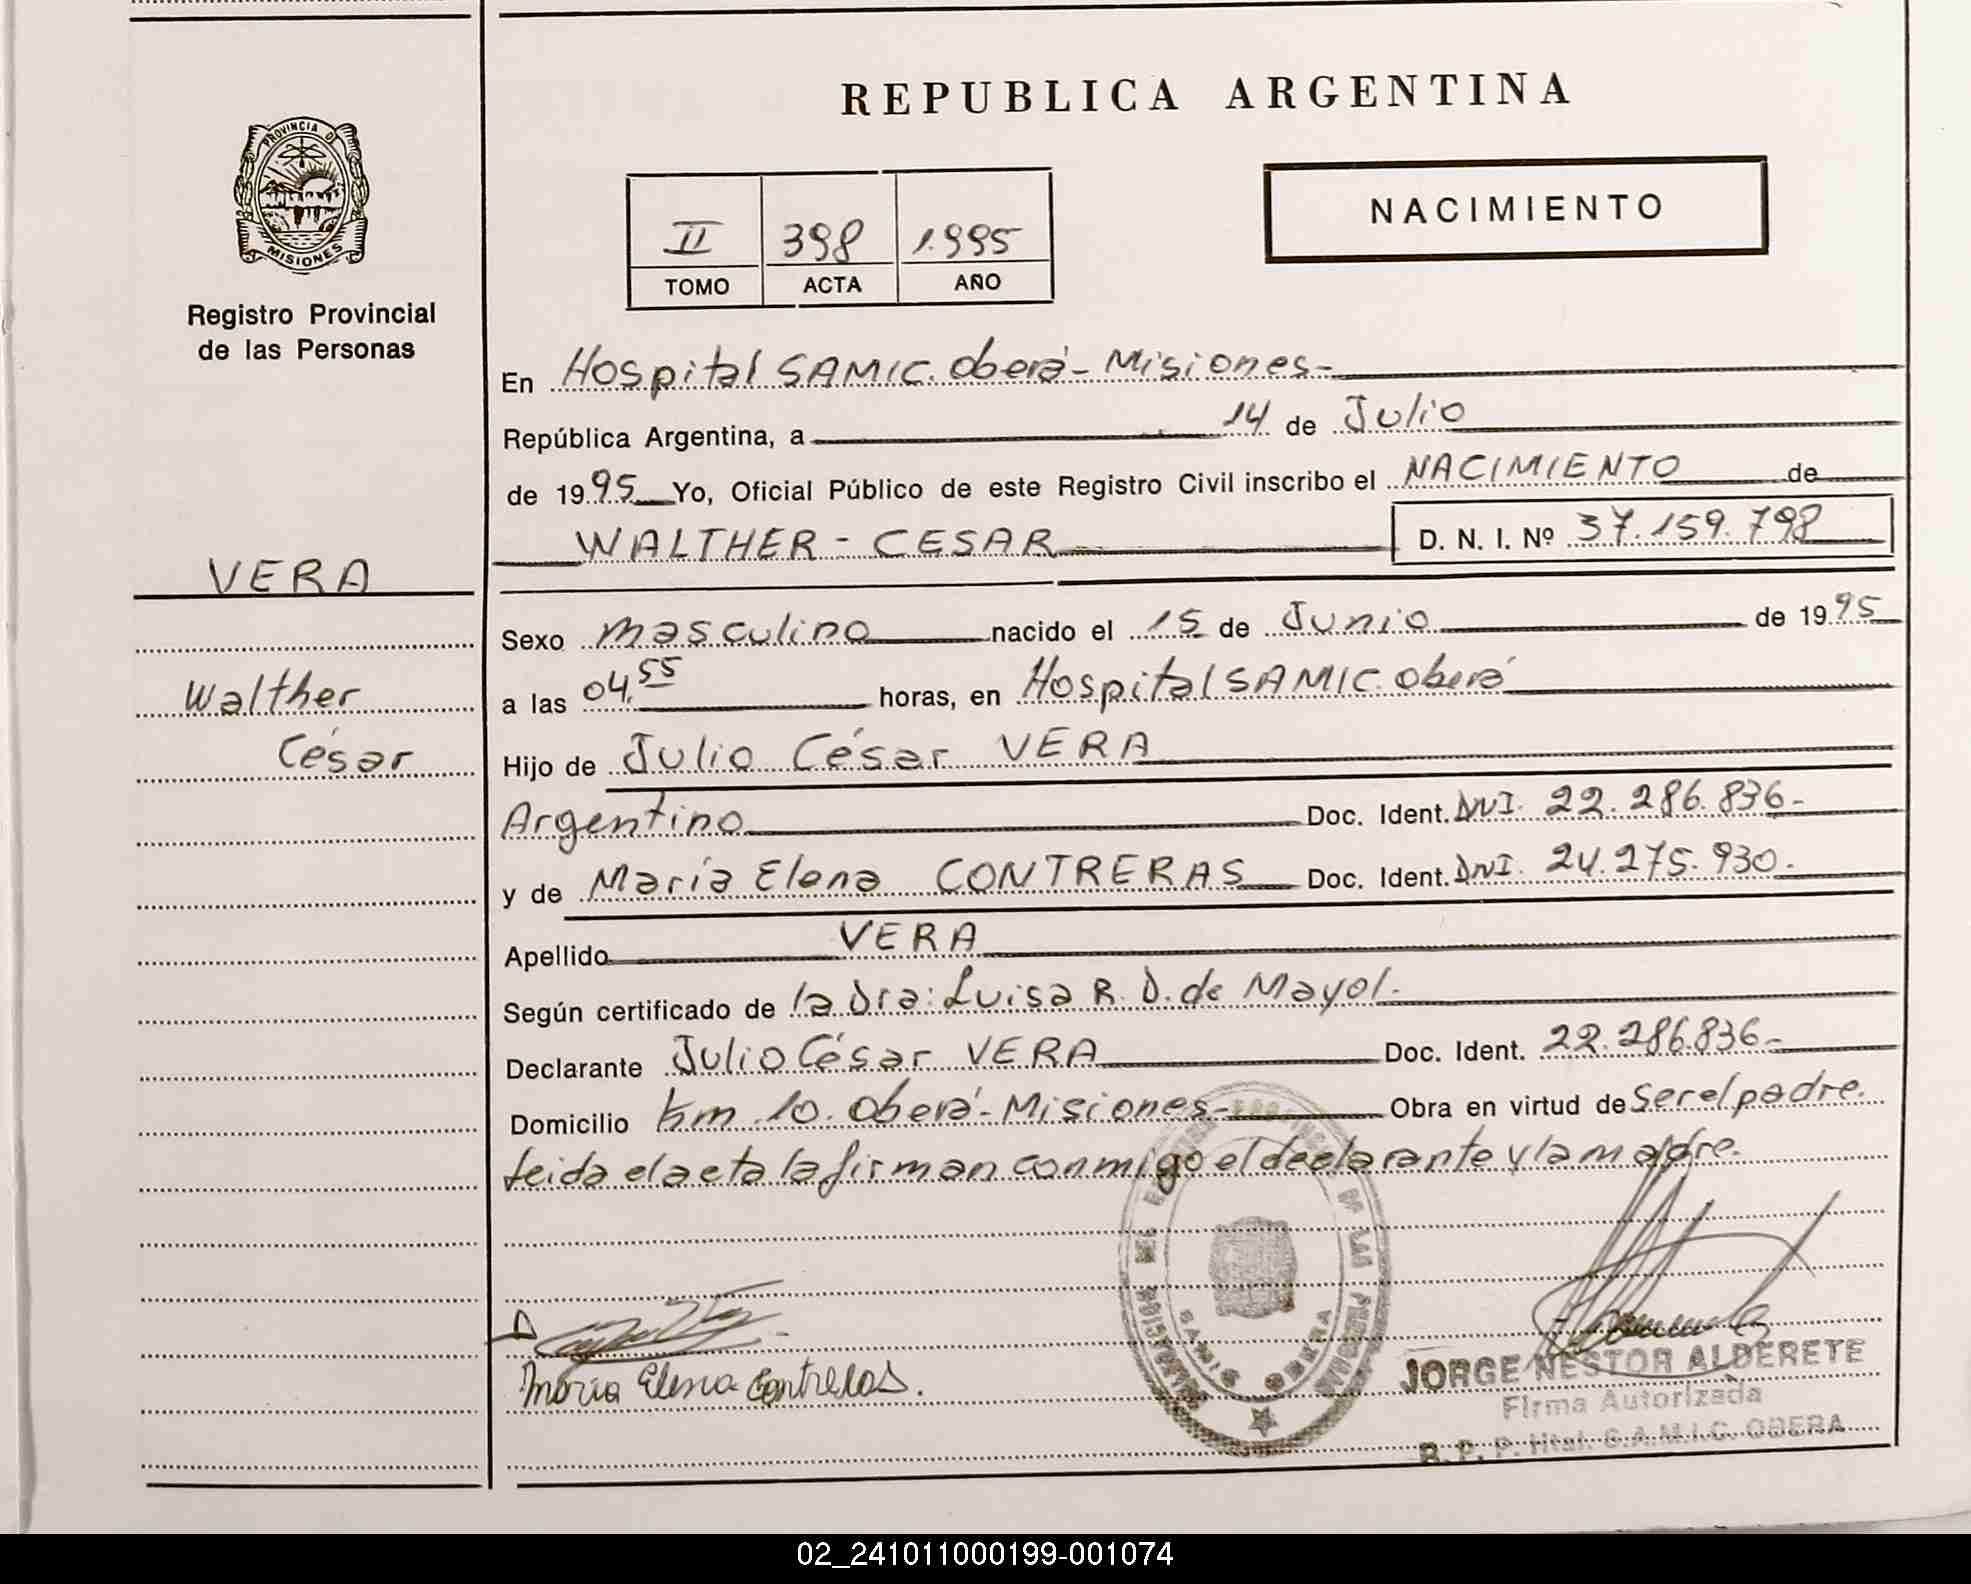 REPUBLICA ARGENTINA
PROVINCIA DE
MISIONES
Registro Provincial
de las Personas
II 398 1.995
TOMO ACTA AÑO
NACIMIENTO
En Hospital SAMIC. Oberá - Misiones -
República Argentina, a 14 de Julio
de 1995 Yo, Oficial Público de este Registro Civil inscribo el NACIMIENTO de
WALTHER - CESAR D. N. I. Nº 37.159.798
VERA
Sexo masculino nacido el 15 de Junio de 1995
Walther
a las 04,55 horas, en Hospital SAMIC. Oberá
César
Hijo de Julio César VERA
Argentino Doc. Ident. DNI. 22.286.836-
y de María Elena CONTRERAS Doc. Ident. DNI. 24.275.930.
Apellido VERA
Según certificado de la Dra: Luisa R. D. de Mayol.
Declarante Julio César VERA Doc. Ident. 22.286.836-
Domicilio km. 10. Oberá - Misiones - Obra en virtud de ser el padre.
leida el acta la firman conmigo el declarante y la madre.
María Elena Contreras.
JORGE NESTOR ALDERETE
Firma Autorizada
S.A.M.I.C. OBERA
02_241011000199-001074